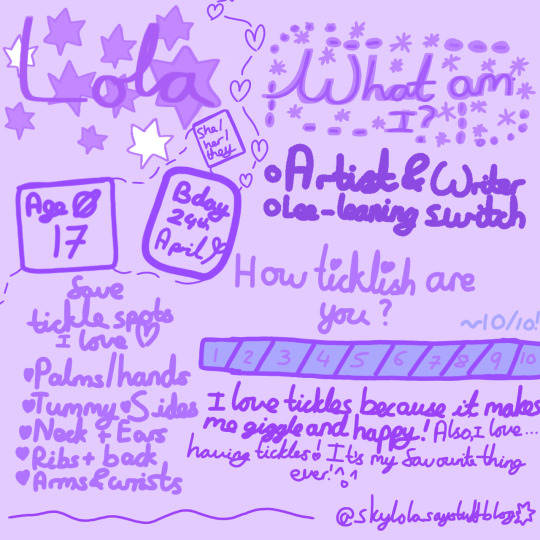 Lola
She/
her/
they
What am
I?
Artist & Writer
Lee-leaning switch
Age
17
Bday
24th
April
How ticklish are
you?
~10/10!
1 2 3 4 5 6 7 8 9 10
Fave
tickle spots
I love
Palms/hands
Tummy Sides
Neck + Ears
Ribs + back
Arms & wrists
I love tickles because it makes
me giggle and happy! Also, I love...
having tickles! It's my favourite thing
ever! ^^